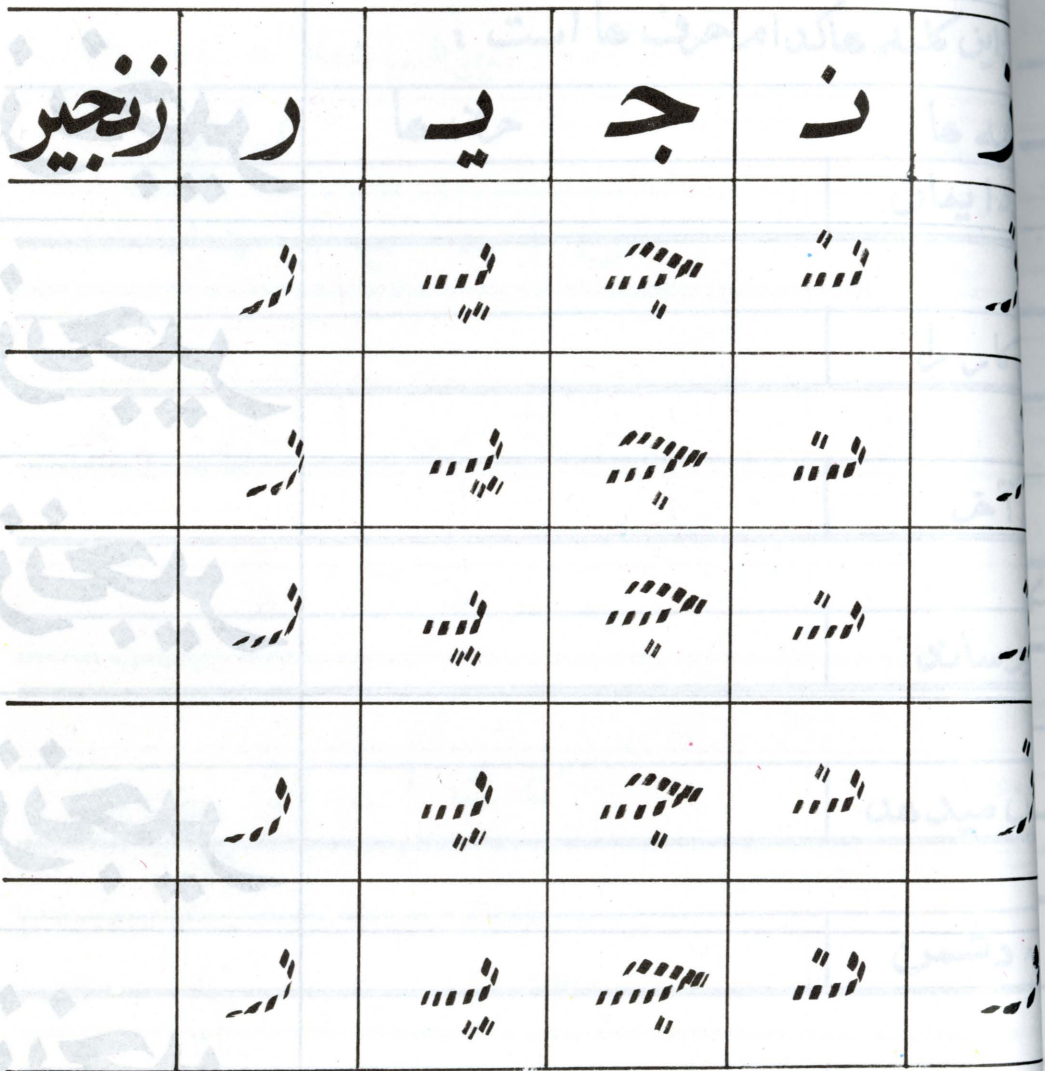 ز نـ جـ یـ ر زنجیر
ز نـ جـ یـ ر
ز نـ جـ یـ ر
ز نـ جـ یـ ر
ز نـ جـ یـ ر
ز نـ جـ یـ ر